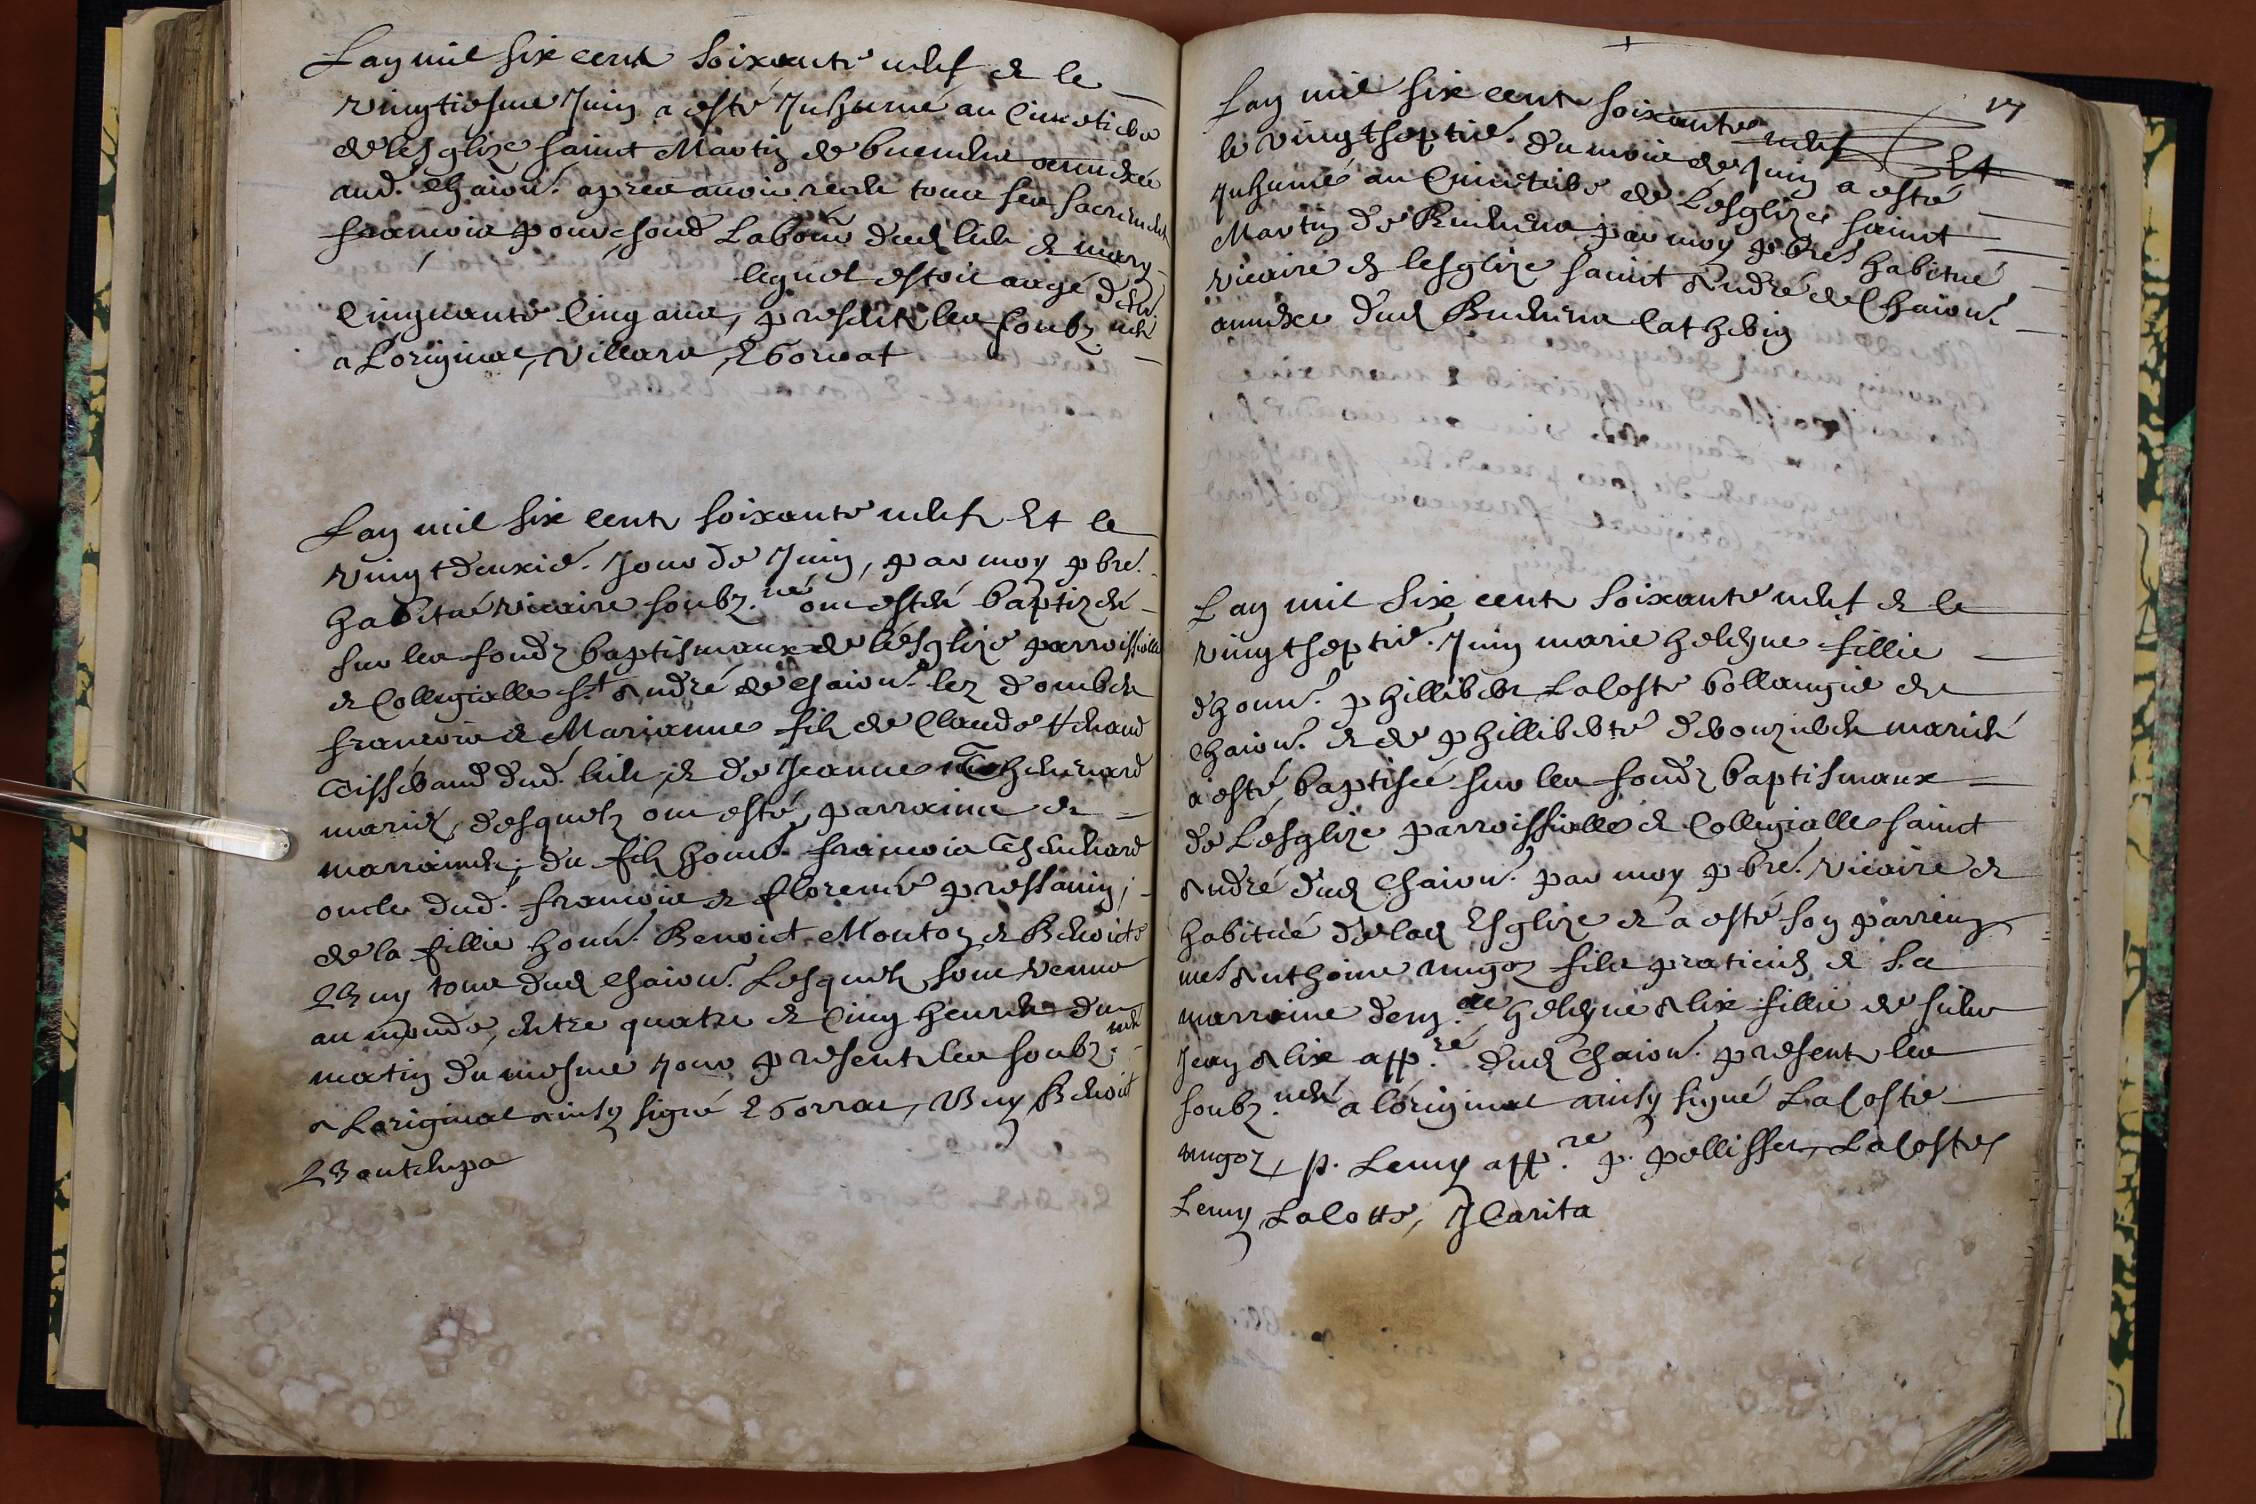 Lan mil six cent soixante neuf & le
vingtiesme Juin a esté Inhumé au Cimetiere
de lesglize saint Martin de buenens annexée
aud. chaion. apres avoir receu tous ses sacrements
francois pour son Laboür dud lieu & mary
lequel estoit aagé de
Cinquante Cinq ans, presents les soubz.nés
a Loriginal, Villars, E Gorrat
Lan mil six cent soixante neuf Et le
vingt deuxie. Jour de Juin, par moy pbre.
habitué vicaire soubz.né ont estés baptizés
sur les fondz baptismaux de lésglize parroissialle
& Collegialle st André de chaion. lez dombes
francois & Marianne filz de Claude
Tisserand dud. lieu, & de Jeanne Thevenard
mariez, desquelz ont esté, parrains &
marraines; du filz honn. francois Thevenard
oncle dud. francois & florence pressavin;
de la fillie honn. Benoict Monton & Benoicte
Buy tous dud chaion. Lesquels sont venus
au monde, entre quatre & Cinq heures du
matin du mesme jour presents les soubz.nés
a Loriginal ainsy signé E Gorrat, Buy Benoit

17
Lan mil six cent soixante neuf Et
le vingtseptie. du mois de Juin a esté
Inhumé au Cimetiere de Lésglize saint
Martin de Buenens par moy pbre habitué
vicaire & lesglize saint André de Chaion.
annexe dud Buenens Catherin
Lan mil six cent soixante neuf & le
vingtseptie. Juin marie heleyne fillie
dhonn. phillibert Lacoste bollangie de
chaion. & de philliberte debourzieres mariés
a esté baptisée sur les fondz baptismaux
de Lésglize parroissialle & Collegialle saint
André dud chaion. par moy pbre. vicaire &
habitué de lad Esglize & a esté son parrein
me Anthoine migoz filz praticien & sa
marraine demz.lle heleyne Alix fillie de sieur
Jean Alix app.re dud chaion. present les
soubz.nés a lóriginal ainsy signé Lacoste
migoz, p. Lemy app.re p. pellisser, Lacoste,
Lemy Lacotte, J Carita